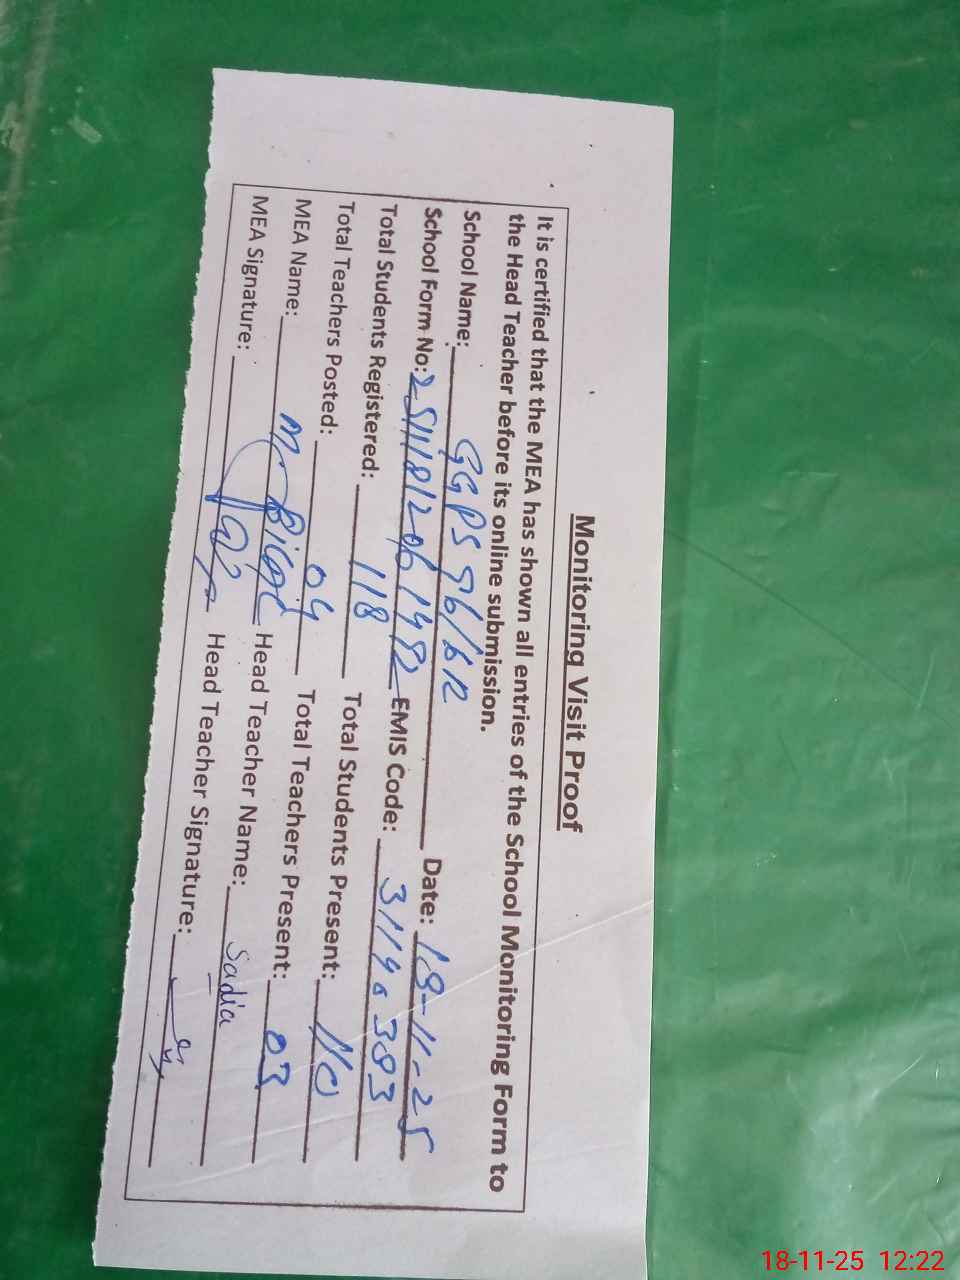 Monitoring Visit Proof
It is certified that the MEA has shown all entries of the School Monitoring Form to
the Head Teacher before its online submission.
School Name: GGPS 96/6R Date: 18-11-25
School Form No: EMIS Code:
Total Students Registered: 118 Total Students Present: 110
Total Teachers Posted: 04 Total Teachers Present: 03
MEA Name: Head Teacher Name: Sadia
MEA Signature: Head Teacher Signature:
18-11-25 12:22